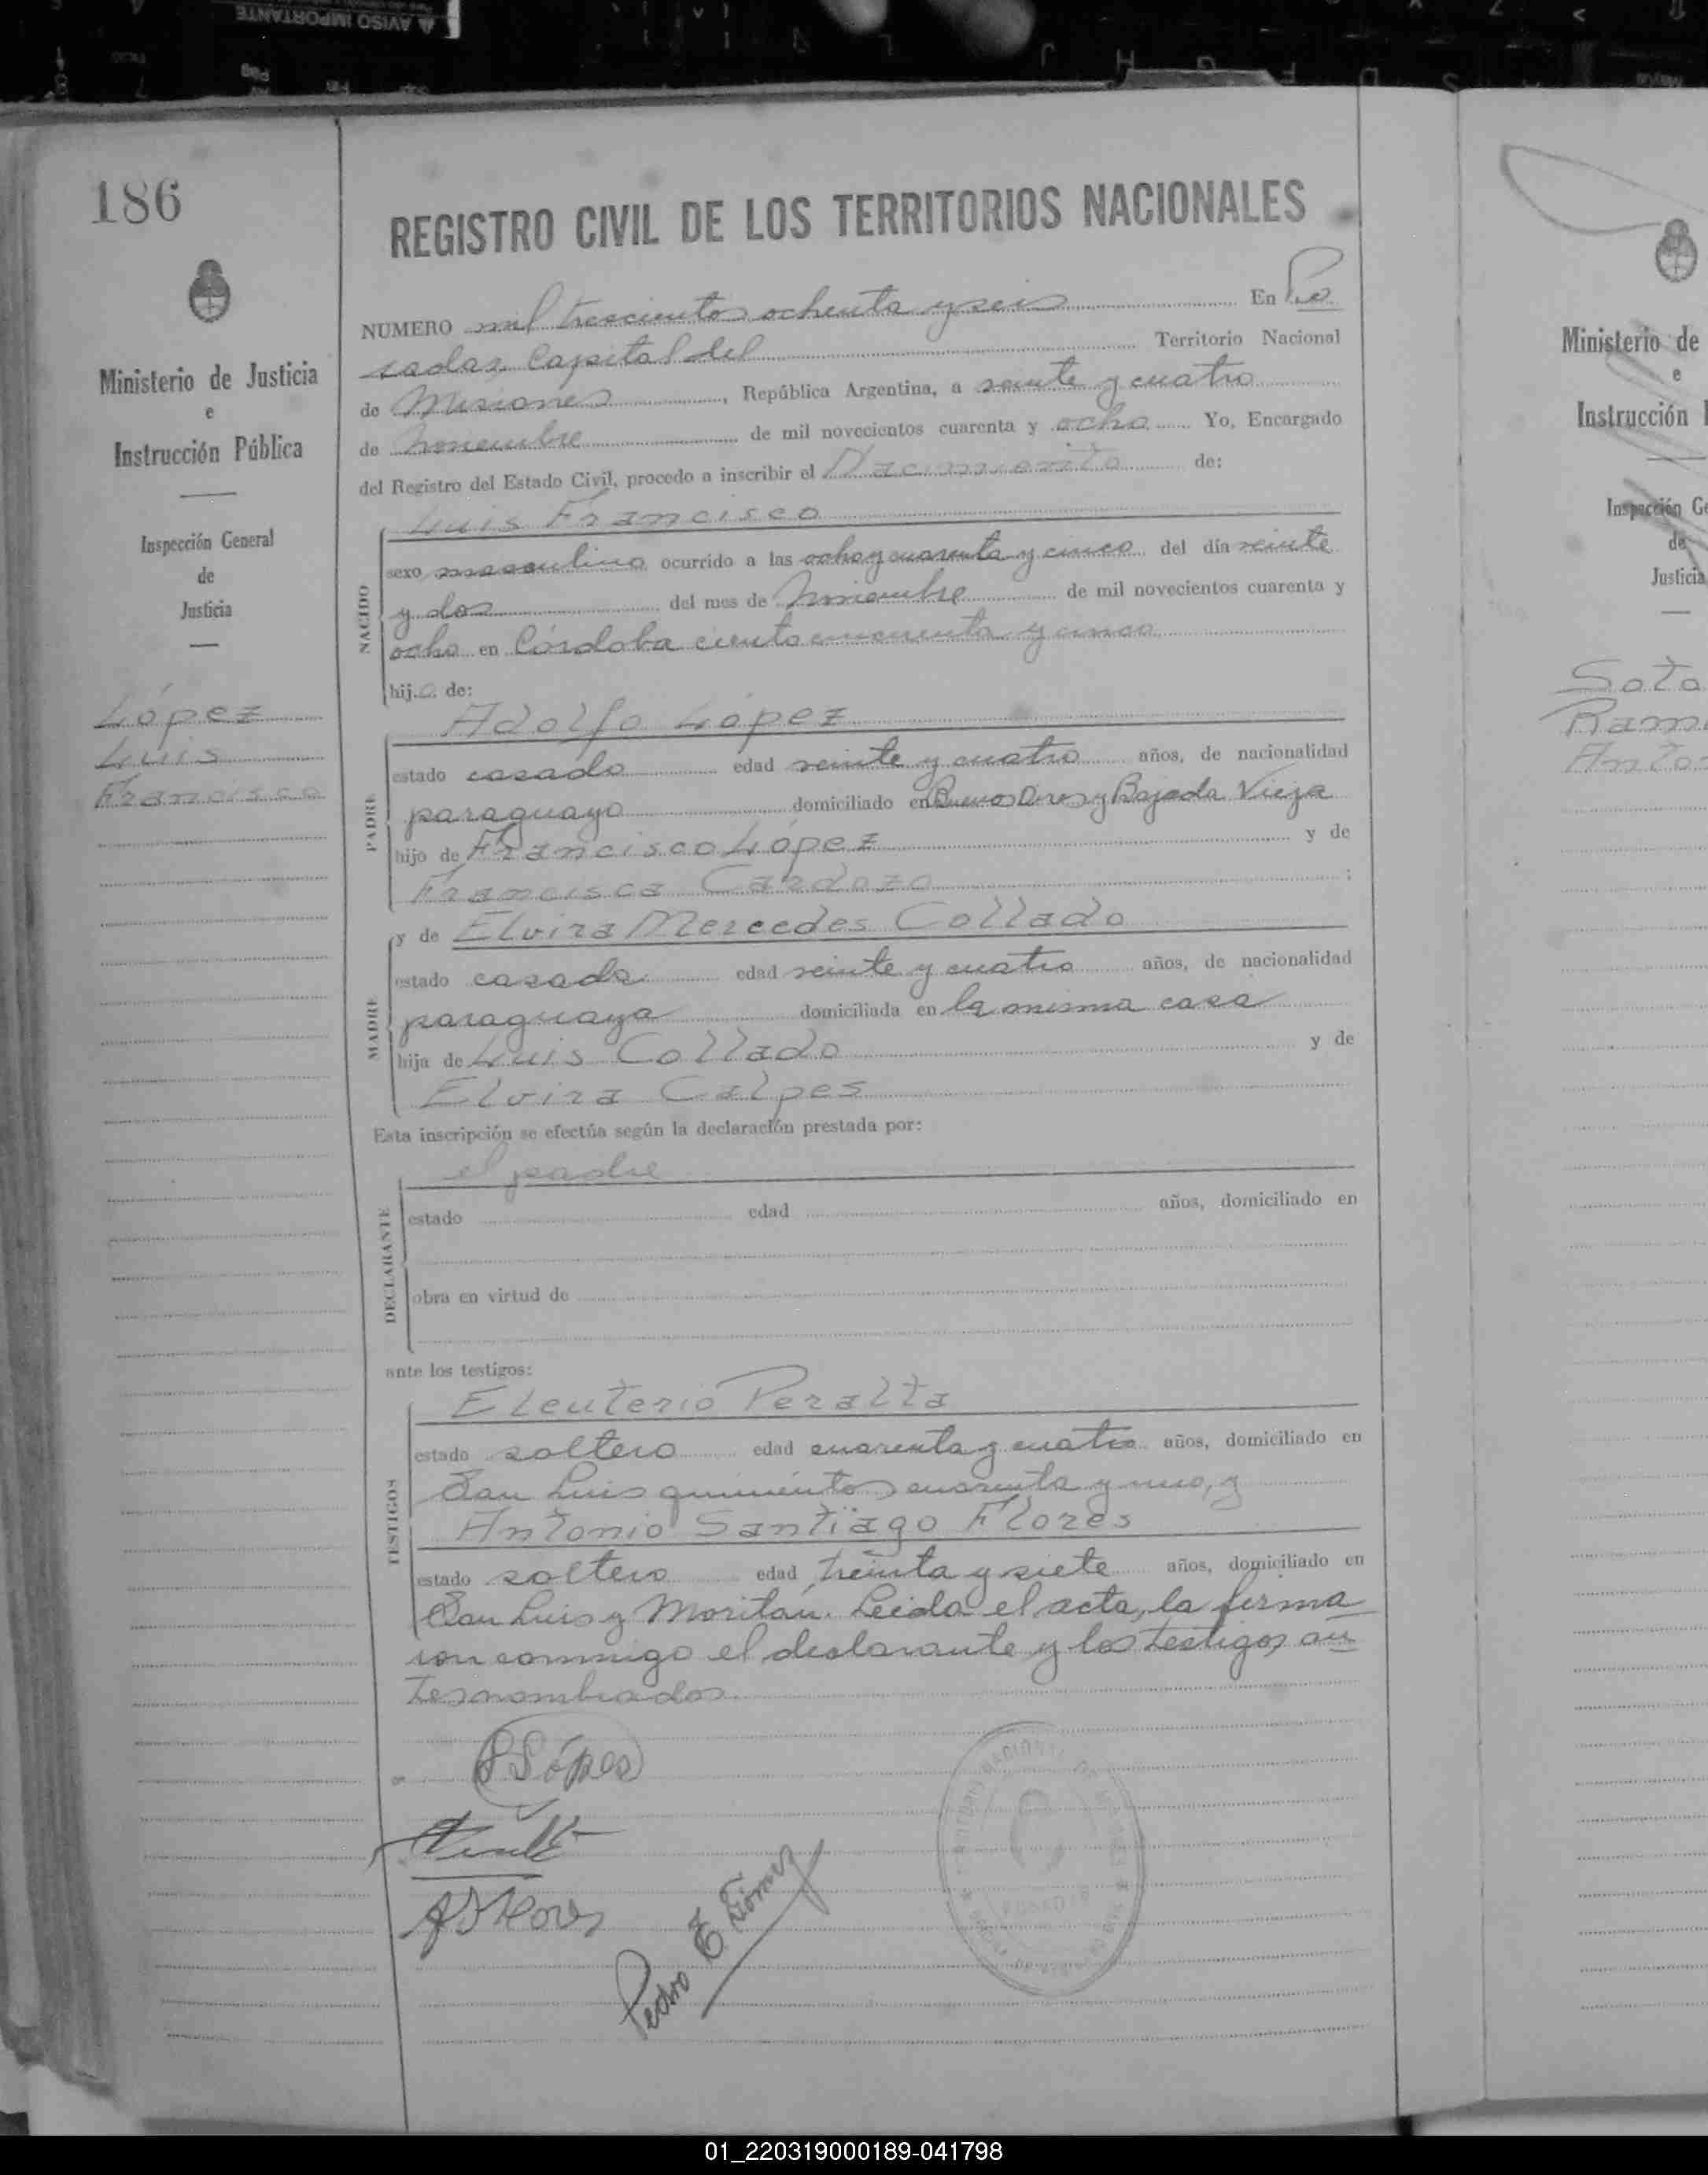 AVISO IMPORTANTE
186
REGISTRO CIVIL DE LOS TERRITORIOS NACIONALES
Ministerio de Justicia
e
Instrucción Pública
Inspección General
de
Justicia
López
Luis
Francisco
NUMERO mil trescientos ochenta y seis En Po
sadas, Capital del Territorio Nacional
de Misiones, República Argentina, a veinte y cuatro
de Noviembre de mil novecientos cuarenta y ocho Yo, Encargado
del Registro del Estado Civil, procedo a inscribir el Nacimiento de:
NACIDO
Luis Francisco
sexo masculino ocurrido a las ocho y cuarenta y cinco del día veinte
y dos del mes de Noviembre de mil novecientos cuarenta y
ocho en Córdoba ciento cincuenta y cinco
hijo de:
PADRE
Adolfo López
estado casado edad veinte y cuatro años, de nacionalidad
paraguayo domiciliado en Buenos Aires y Bajada Vieja
hijo de Francisco López y de
Francisca Cardozo;
MADRE
y de Elvira Mercedes Collado
estado casada edad veinte y cuatro años, de nacionalidad
paraguaya domiciliada en la misma casa
hija de Luis Collado y de
Elvira Calpes
Esta inscripción se efectúa según la declaración prestada por:
DECLARANTE
el padre
estado edad años, domiciliado en
obra en virtud de
ante los testigos:
TESTIGOS
Eleuterio Peralta
estado soltero edad cuarenta y cuatro años, domiciliado en
San Luis quinientos cuarenta y uno, y
Antonio Santiago Flores
estado soltero edad treinta y siete años, domiciliado en
San Luis y Moritán. Leida el acta, la firma
ron conmigo el declarante y los testigos an
tesnombrados.
López
A S Flores
Pedro E
POSADAS
Ministerio de
e
Instrucción
Inspección Ge
de
Justicia
Soto
Ram
Anto
01_220319000189-041798